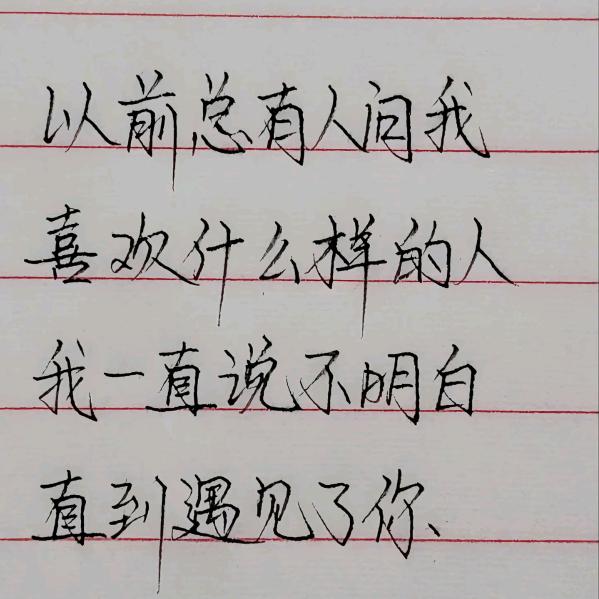 以前总有人问我
喜欢什么样的人
我一直说不明白
直到遇见了你、